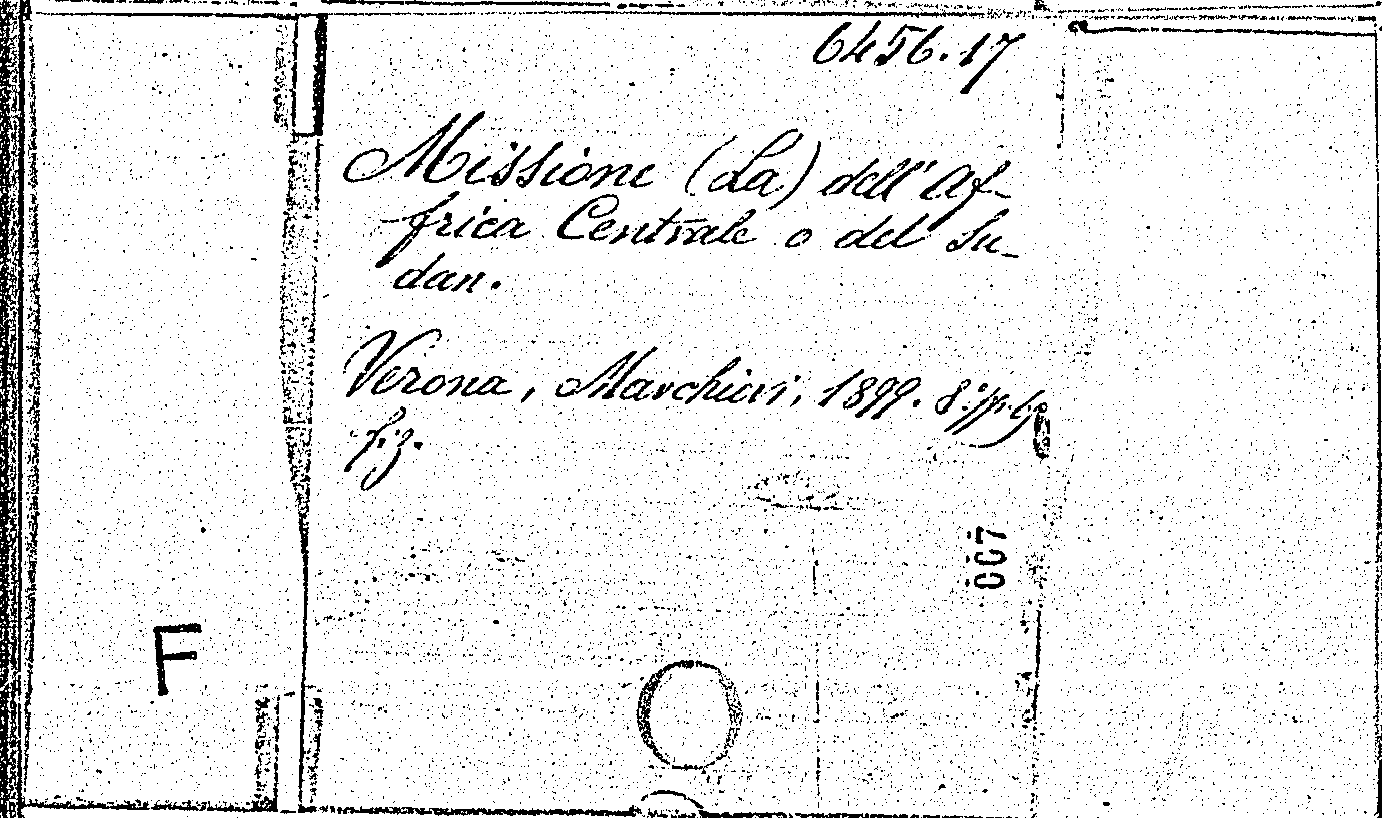 6456.17
Missione (La) dell'Af-
frica Centrale o del Su-
dan.
Verona, Marchiori, 1899. 8.°
fig.
007
F